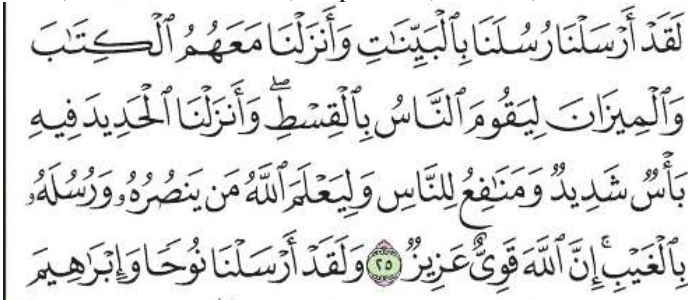 لَقَدْ أَرْسَلْنَا رُسُلَنَا بِالْبَيِّنَٰتِ وَأَنزَلْنَا مَعَهُمُ الْكِتَٰبَ
وَالْمِيزَانَ لِيَقُومَ النَّاسُ بِالْقِسْطِ ۖ وَأَنزَلْنَا الْحَدِيدَ فِيهِ
بَأْسٌ شَدِيدٌ وَمَنَٰفِعُ لِلنَّاسِ وَلِيَعْلَمَ اللَّهُ مَن يَنصُرُهُۥ وَرُسُلَهُۥ
بِالْغَيْبِ ۚ إِنَّ اللَّهَ قَوِىٌّ عَزِيزٌ ٢٥ وَلَقَدْ أَرْسَلْنَا نُوحًا وَإِبْرَٰهِيمَ